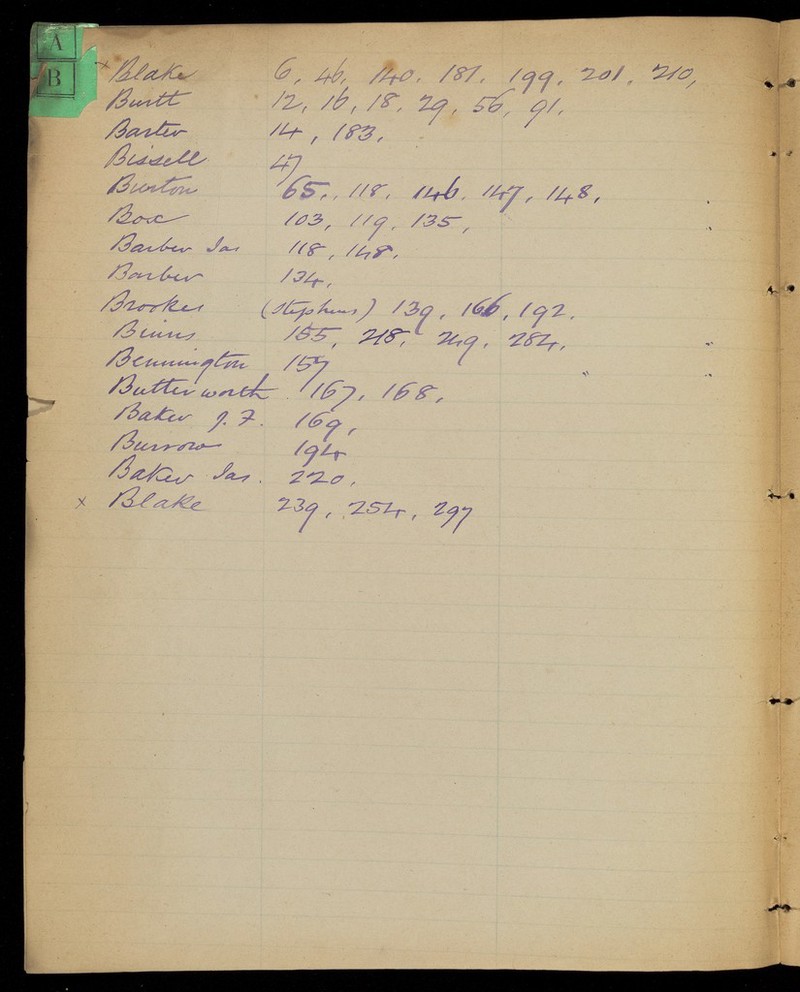 A
B
x Blake 6, 46, 140, 181, 199, 201, 210,
Burtt 12, 16, 18, 29, 56, 91,
Barter 14, 183,
Bissell 47
Burton 65, 118, 146, 147, 148,
Box 103, 119, 135,
Barber Jas 118, 148,
Barber 134,
Brookes (Stephens) 139, 166, 192.
Binns 155, 218, 249, 284,
Bennington 157
Butterworth 167, 168,
Baker J. F. 169,
Burrow 194
Baker Jas. 220,
x Blake 239, 254, 297